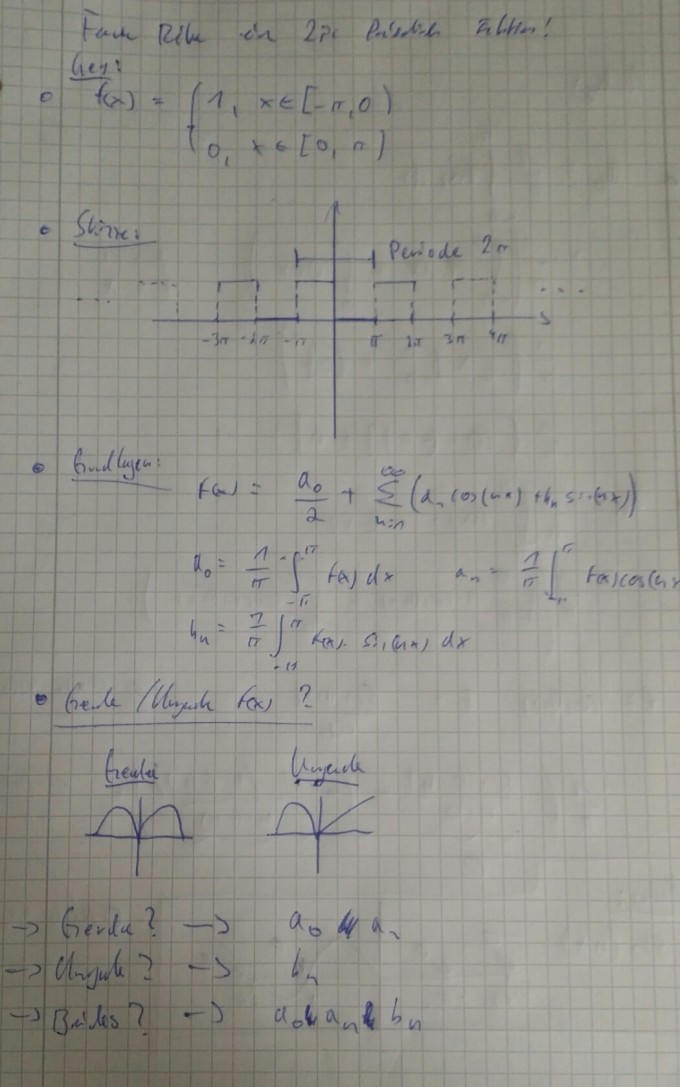 Fourier Reihe ein 2π Periodischen Funktion!
Geg:
f(x) = { 1, x ∈ [-π, 0)
0, x ∈ [0, π)
Skizze:
Periode 2π
... -3π -2π -π π 2π 3π 4π ...
Grundlagen:
f(x) = a₀/2 + ∑_{n=1}^{∞} (aₙ cos(nx) + bₙ sin(nx))
a₀ = 1/π ∫_{-π}^{π} f(x) dx aₙ = 1/π ∫_{-π}^{π} f(x) cos(nx
bₙ = 1/π ∫_{-π}^{π} f(x) · sin(nx) dx
Gerade / Ungerade f(x) ?
Gerade Ungerade
→ Gerade? → a₀ aₙ
→ Ungerade? → bₙ
→ Beides? → a₀ aₙ bₙ